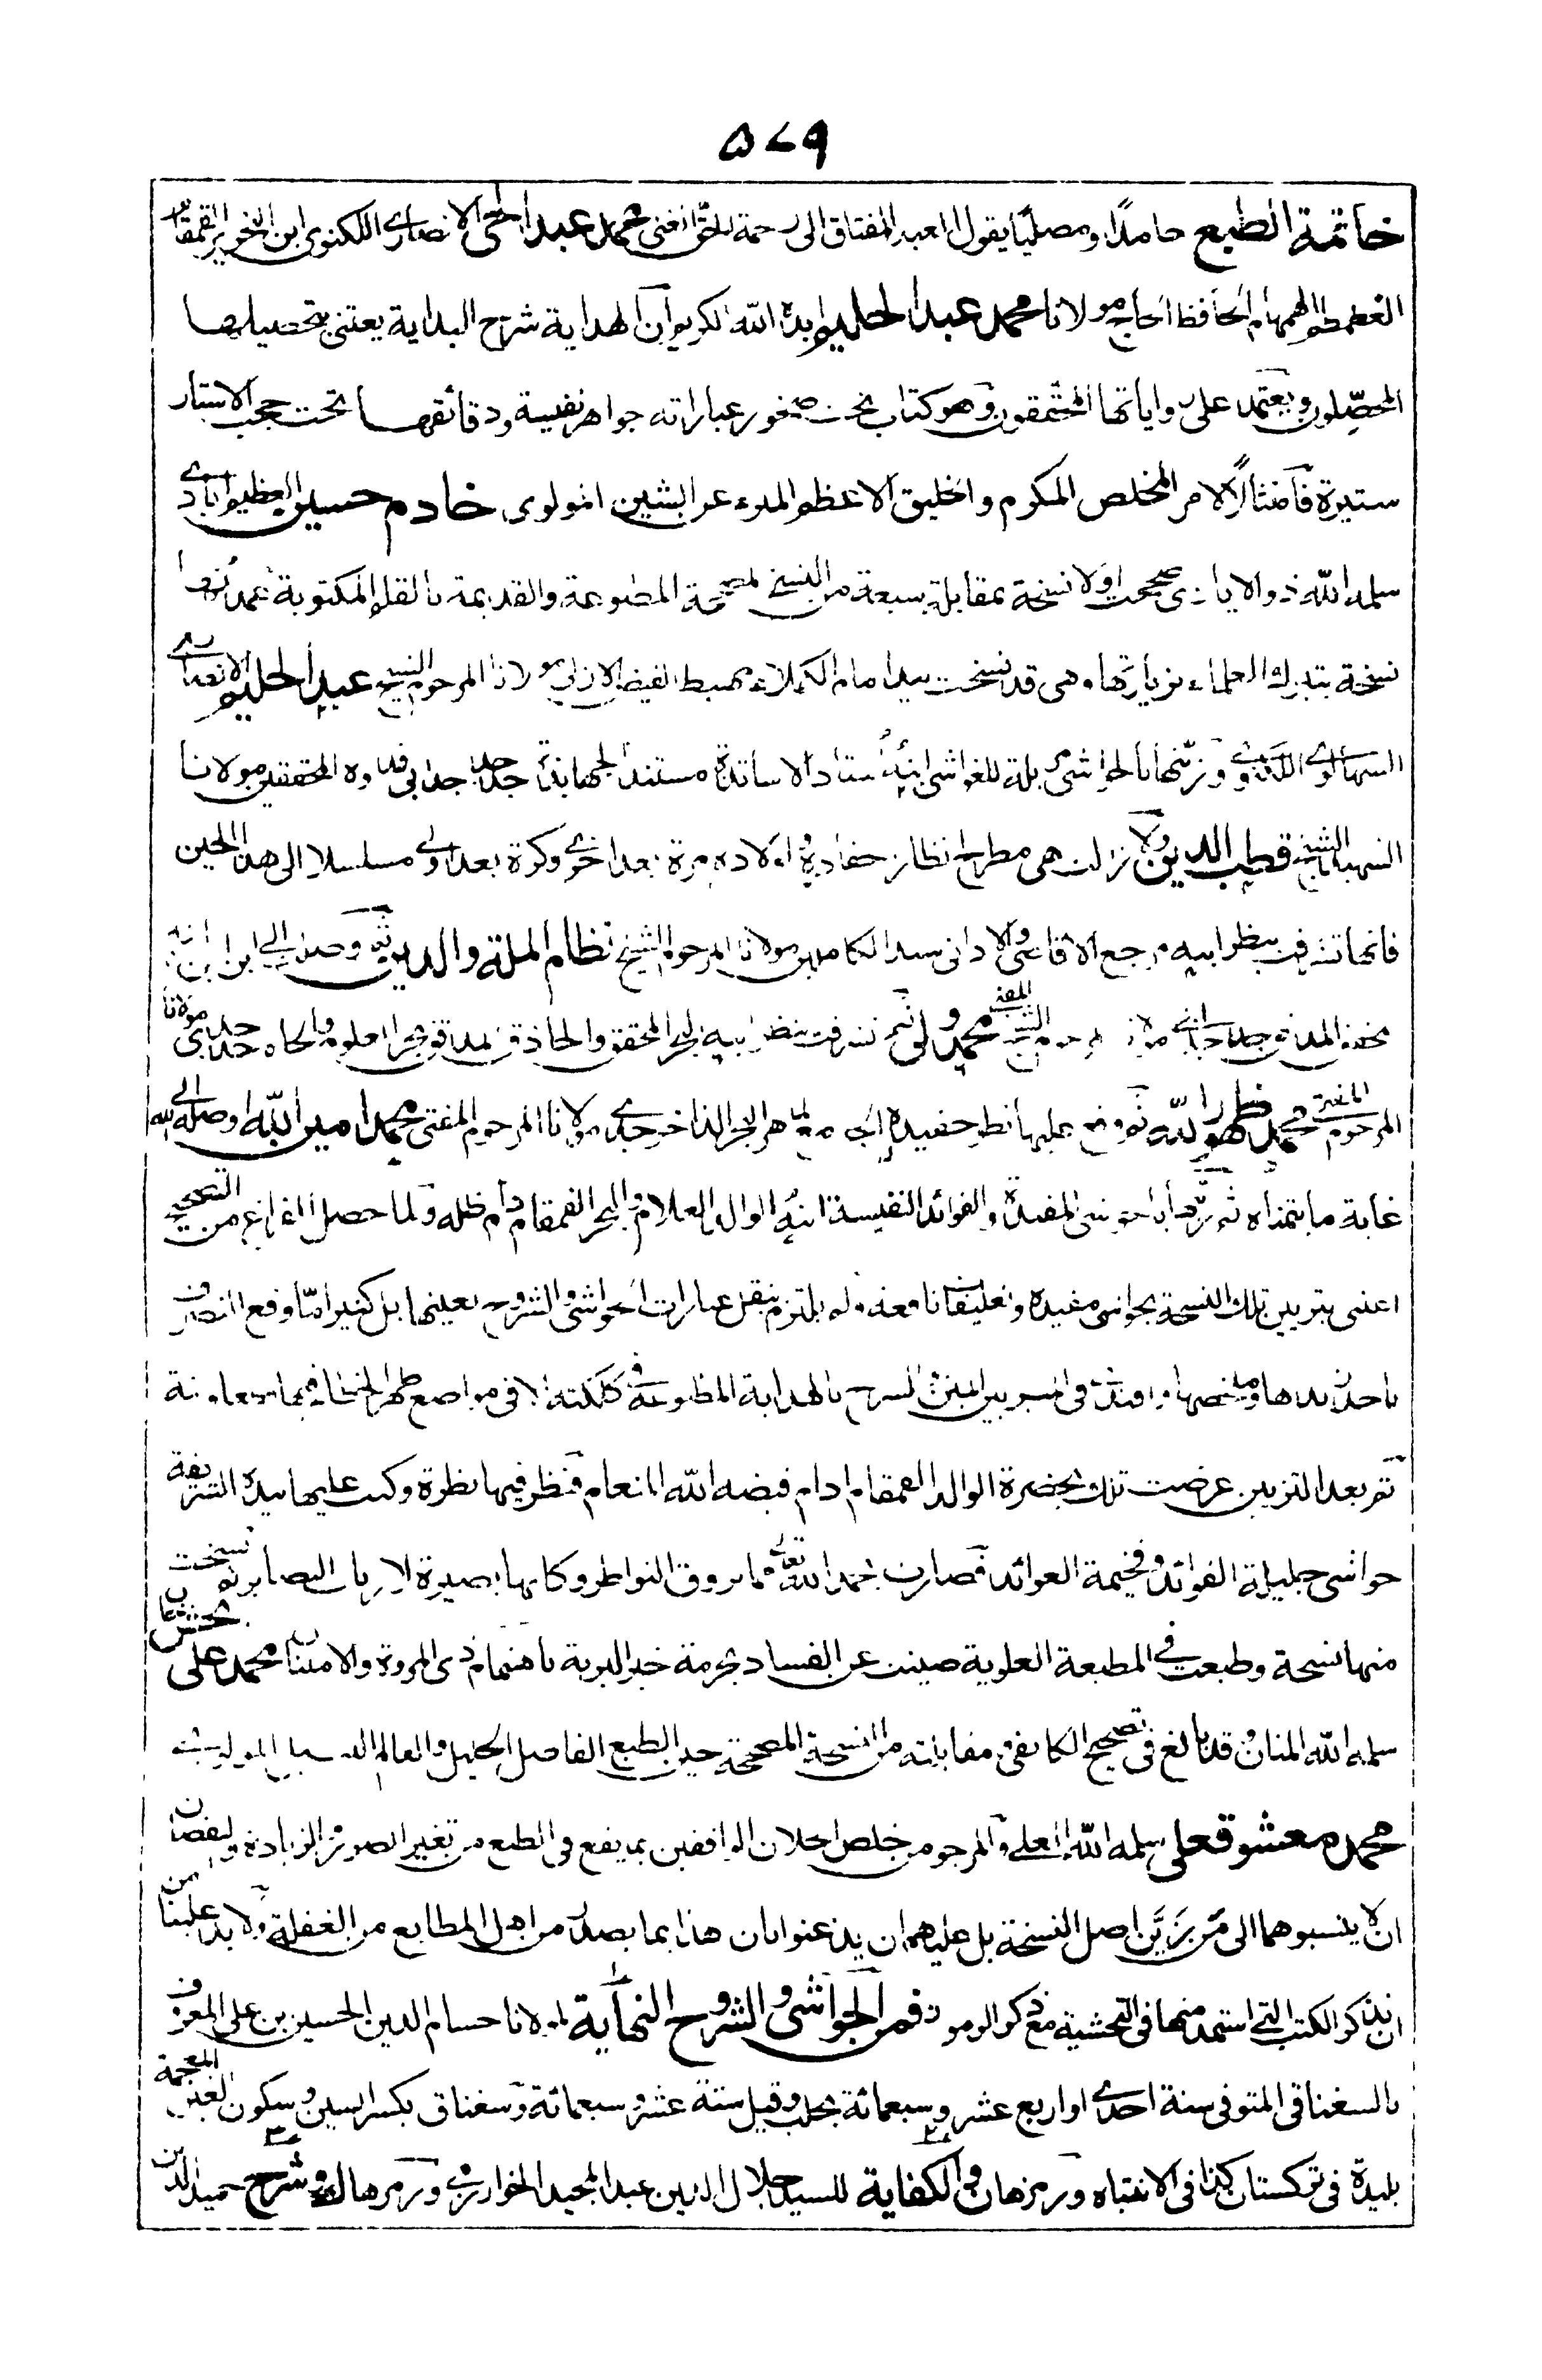 ٥٧٩
خاتمة الطبع حامدًا ومصليًا يقول العبد المفتاق الى رحمة الحق الغنى محمد عبد الحى الانصارى اللكنوى ابن النحرير القمقام
الغطمطم الهمام الحافظ الحاج مولانا محمد عبد الحليم ابده الله الكريم ان الهداية شرح البداية يعتنى بتحصيلها
المحصّلون ويعتمد على رواياتها المحققون وهو كتاب تحت صخور عباراته جواهر نفيسة ودقائقها تحت حجب الاستار
ستيرة فامتثالًا لامر المخلص المكرم والخليق الاعظم المبرء عن الشين المولوى خادم حسين العظيم ابادى
سلمه الله ذو الايادى صححت اولا نسخة بمقابلة سبعة من النسخ المصححة المطبوعة والقديمة بالقلم المكتوبة عمدتها
نسخة يتبرك العلماء بزيارتها وهى قد نسخت بيد امام الكملاء مهبط الفيض الازلى مولانا المرحوم الشيخ عبد الحليم الانصارى
السهالوى اللكنوى وزيّنها بالحواشى ابنه استاد الاساتذة مستند الجهابذة جد جد جد ابى قدوة المحققين مولانا
الشهيد الشيخ قطب الدين ولا زالت هى مطرح انظار حفادية اولاده مرة بعد اخرى وكرة بعد اولى مسلسلا الى هذا الحين
فانها تشرفت بنظر ابيه مرجع الاقاصى والادانى سيد الكاملين مولانا المرحوم الشيخ نظام الملة والدين ثم وصلت الى ابن ابن اخيه
المرحوم محمد ولى ثم تشرفت بنظر ابنه البحر المحقق والحاذق المدقق بحر العلوم والجاه جد ابى مولانا
المرحوم المفتى محمد ظهور الله ثم وقع عليها نظر حفيده اخيه البحر الذاخر جدى مولانا المرحوم المفتى محمد امين الله اوصله الله الى
غاية ما يتمناه ثم زينها بالحواشى المفيدة والفوائد النفيسة ابنه الوالد العلام والبحر القمقام دام ظله ولما حصل الفراغ من التصحيح
اعتنى بتزيين تلك النسخة بحواشى مفيدة وتعليقات نافعة ولم يلتزم بنقل عبارات الحواشى والشروح بعينها بل كثيرا ما وقع التصرف
باخذ زبدها وملخصها بالهداية المطبوعة فى كلكته الا فى مواضع ظهر الخطا فيها
ثم بعد التزيين عرضت تلك بحضرة الوالد القمقام ادام فيضه الله المنعام فنظر فيها نظرة وكتب عليها بيده الشريفة
حواشى جليلة الفوائد وفخيمة العوائد فصارت بحمد الله تعالى مما يروق النواظر وكانها بصيرة لارباب البصاير ثم نسخت
منها نسخة وطبعت فى المطبعة العلوية صينت عن الفساد بحرمة خير البرية باهتمام ذى المروة والامتنان محمد على بخش خان
سلمه الله المنان وقد بالغ فى تصحيح الكاپى فى مقابلته من النسخة المصححة حين الطبع الفاضل الجليل والعالم النبيل المولوى
محمد معشوق على سلمه الله العلى والمرجو من خلص اخلان الواقفين بما يقع فى الطبع من تغيير الصور والزيادة والنقصان
ان لا ينسبوهما الى من زيّن اصل النسخة بل عليهم ان يذعنوا بان هذا بما يصدر من اهل المطابع من الغفلة ولا بد علينا من
ان نذكر الكتب التى استمد منها فى التحشية مع ذكر الرموز فمن الحواشى والشروح النهاية لمولانا حسام الدين الحسين بن على المعروف
بالسغناقى المتوفى سنة احدى او اربع عشر وسبعمائة بحلب وقيل ستة عشر وسبعمائة وسغناق بكسر السين وسكون الغين المعجمة
بليدة فى تركستان كذا فى الانتباه ورمزها ن والكفاية للسيد جلال الدين عبد المجيد الخوارزمى ورمزها ك وشرح حميد الدين